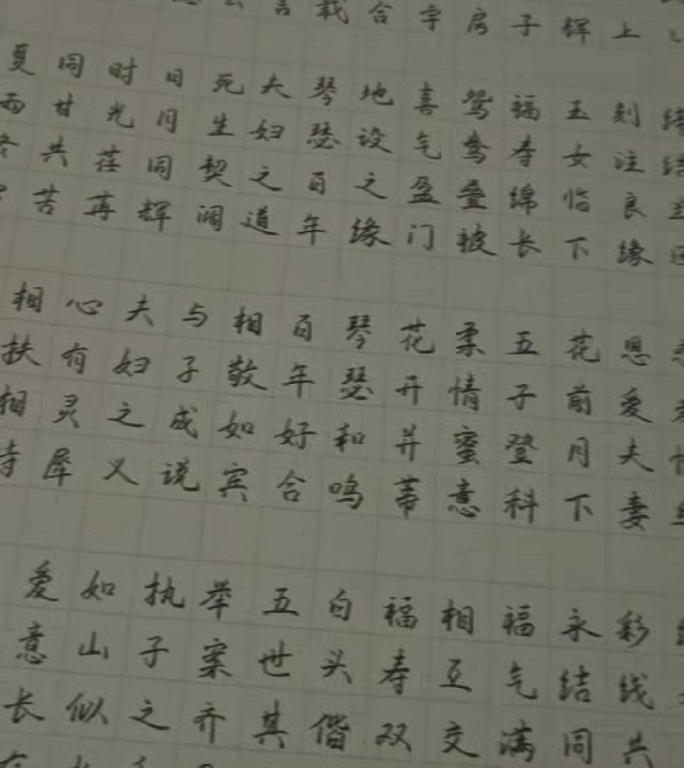 上
辉
子
房
宇
合
载
言
刻注良缘
玉女临下
福寿绵长
鸳鸯叠被
喜气盈门
地设之缘
琴瑟百年
夫妇之道
死生契阔
日月同辉
时光荏苒
同甘共苦
夏雨冬
恩爱夫妻
花前月下
五子登科
柔情蜜意
花开并蒂
琴瑟和鸣
百年好合
相敬如宾
与子成说
夫妇之义
心有灵犀
相扶相持
彩线共
永结同
福气满
相互交
福寿双
白头偕
五世其
举案齐
执子之
如山似
爱意长